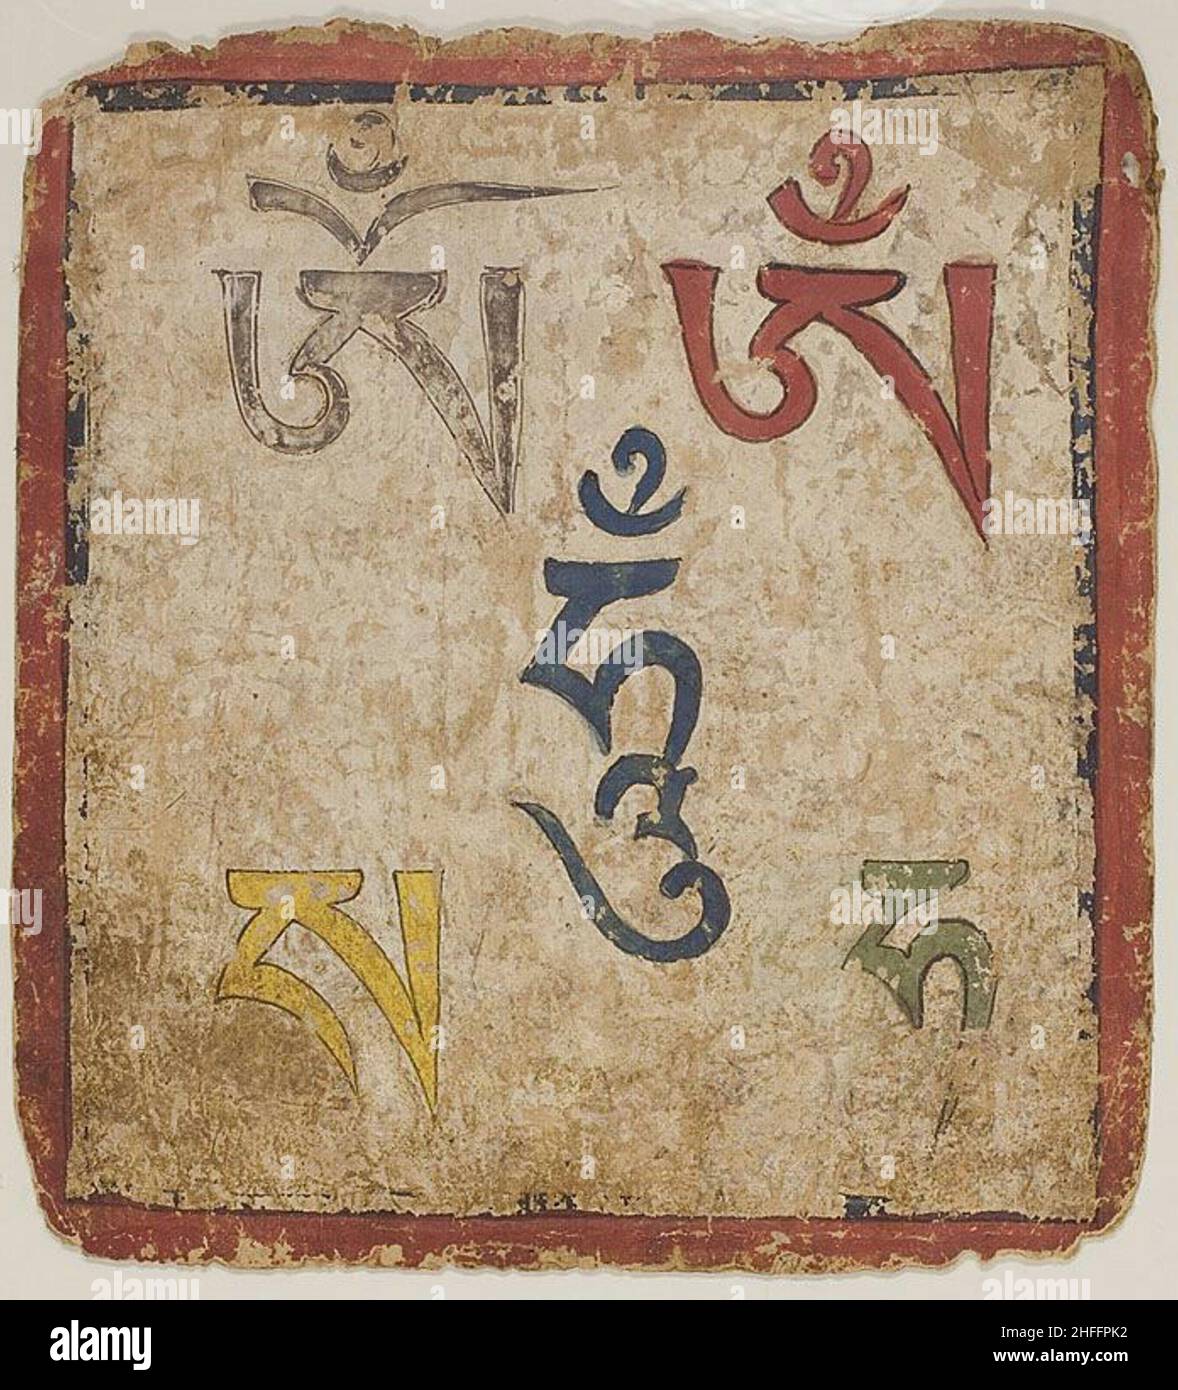 ཨོྃ ཨྃ
ཧཱུྃ
ས ཧ
alamy
Image ID: 2HFFPK2
www.alamy.com